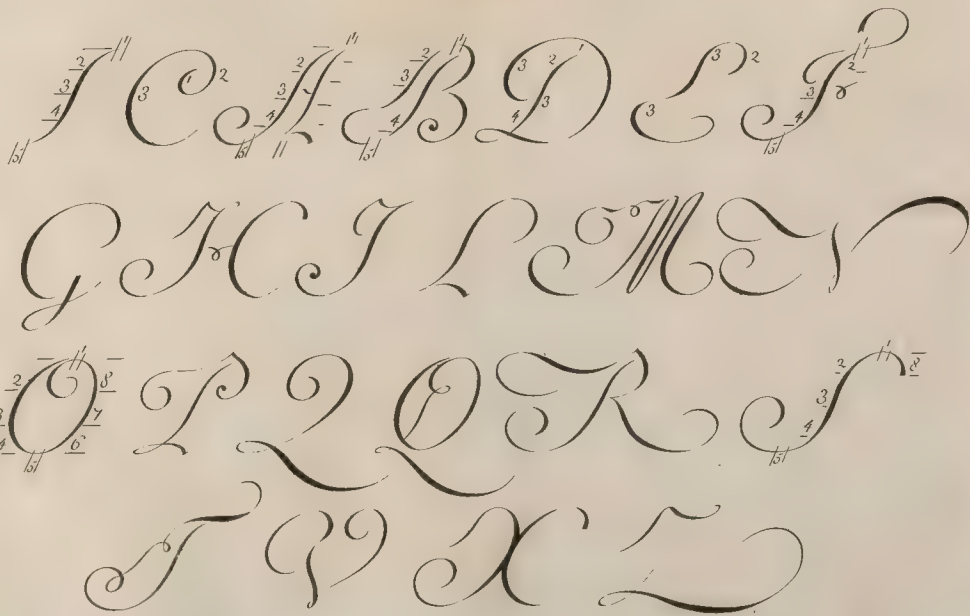 I C A B D E F
G H I L M N
O P Q Q R S
T V X Z